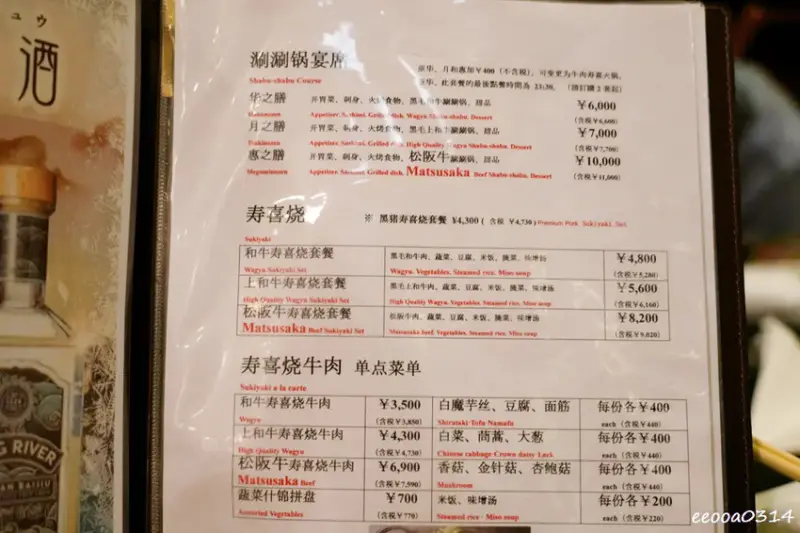 ュウ
酒
涮涮锅宴席
Shabu-shabu Course
豪华、月和惠加￥400（不含税），可变更为牛肉寿喜火锅。
华之膳 开胃菜、刺身、火烤食物、黑毛和牛涮涮锅、甜品 ￥6,000
Appetizer, Sashimi, Grilled dish, Wagyu Shabu-shabu, Dessert （含税￥6,600）
月之膳 开胃菜、刺身、火烤食物、黑毛上和牛涮涮锅、甜品 ￥7,000
Tsukinozen Appetizer, Sashimi, Grilled dish, High Quality Wagyu Shabu-shabu, Dessert （含税￥7,700）
惠之膳 开胃菜、刺身、火烤食物、松阪牛涮涮锅、甜品 ￥10,000
Meguminozen Appetizer, Sashimi, Grilled dish, Matsusaka Beef Shabu-shabu, Dessert （含税￥11,000）
寿喜烧 ※ 黑猪寿喜烧套餐 ¥4,300 ( 含税 ￥4,730 ) Premium Pork Sukiyaki Set
Sukiyaki
和牛寿喜烧套餐 黑毛和牛肉、蔬菜、豆腐、米饭、腌菜、味增汤 ￥4,800
Wagyu Sukiyaki Set Wagyu, Vegetables, Steamed rice, Miso soup （含税￥5,280）
上和牛寿喜烧套餐 黑毛上和牛肉、蔬菜、豆腐、米饭、腌菜、味增汤 ￥5,600
High Quality Wagyu Sukiyaki Set High Quality Wagyu, Vegetables, Steamed rice, Miso soup （含税￥6,160）
松阪牛寿喜烧套餐 松阪牛肉、蔬菜、豆腐、米饭、腌菜、味增汤 ￥8,200
Matsusaka Beef Sukiyaki Set Matsusaka beef, Vegetables, Steamed rice, Miso soup （含税￥9,020）
寿喜烧牛肉 单点菜单
Sukiyaki a la carte
和牛寿喜烧牛肉 ￥3,500 白魔芋丝、豆腐、面筋 每份各￥400
Wagyu （含税￥3,850） Shirataki·Tofu·Namafu each（含税￥440）
上和牛寿喜烧牛肉 ￥4,300 白菜、茼蒿、大葱 每份各￥400
High Quality Wagyu （含税￥4,730） Chinese cabbage·Crown daisy·Leek each（含税￥440）
松阪牛寿喜烧牛肉 ￥6,900 香菇、金针菇、杏鲍菇 每份各￥400
Matsusaka Beef （含税￥7,590） Mushroom each（含税￥440）
蔬菜什锦拼盘 ￥700 米饭、味增汤 每份各￥200
Assorted Vegetables （含税￥770） Steamed rice · Miso soup each（含税￥220）
RIVER
BAIJIU
eeooa0314